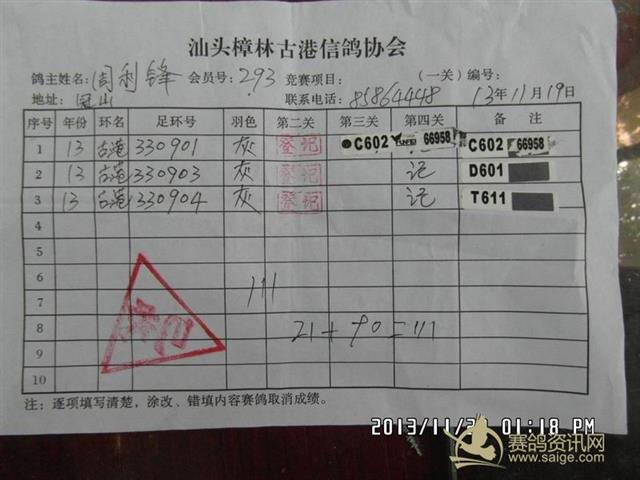 汕头樟林古港信鸽协会
鸽主姓名: 周利锋 会员号: 293 竞赛项目: (一关)编号:
地址: 冠山 联系电话: 85864448 13年11月19日
序号 年份 环名 足环号 羽色 第二关 第三关 第四关 备注
1 13 古港 330901 灰 登记 C602 66958 C602 66958
2 13 古港 330903 灰 登记 记 D601
3 13 古港 330904 灰 登记 记 T611
4
5
6
7 111
8 21+90=111
9
10
注:逐项填写清楚,涂改、错填内容赛鸽取消成绩。
01:18 PM
赛鸽资讯网
www.saige.com